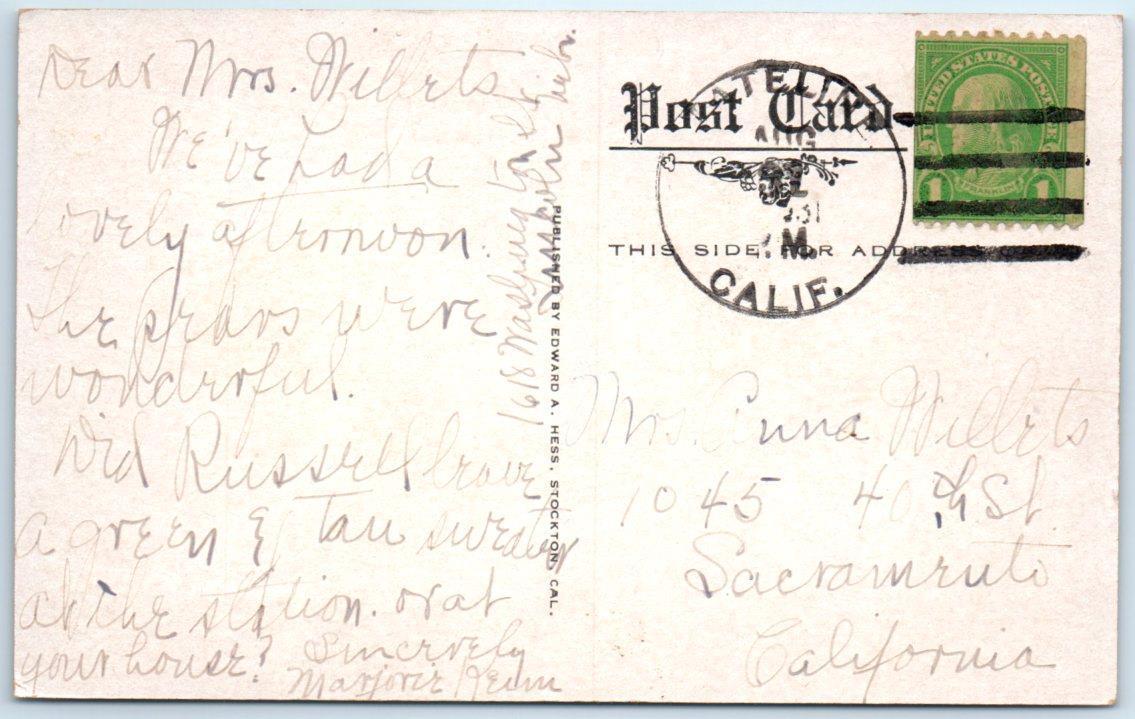 Dear Mrs. Willets
We've had a
lovely afternoon.
The pears were
wonderful.
Did Russell leave
a green & tan sweater
at the station. or at
your house?
Sincerely
Marjorie
1618 Washington St
PUBLISHED BY EDWARD A. HESS, STOCKTON, CAL.
Post Card
THIS SIDE FOR ADDRESS
AUG
31
M.
CALIF.
UNITED STATES POSTAGE
1 FRANKLIN 1
Mrs. Anna Willets
1045 40th St.
Sacramento
California